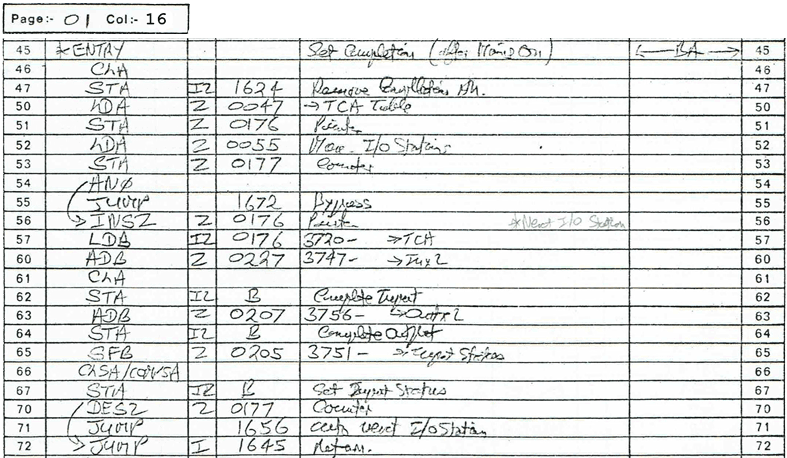 Page:- 01 Col:- 16
45 *ENTRY Set Completion (after Mains On) BA 45
46 CLA 46
47 STA IZ 1624 Remove Completion 47
50 LDA Z 0047 → TCA Table 50
51 STA Z 0176 Pointer 51
52 LDA Z 0055 Max. I/O Stations 52
53 STA Z 0177 Counter 53
54 ANØ 54
55 JUMP 1672 Bypass 55
56 INSZ Z 0176 Pointer *Next I/O Station 56
57 LDB IZ 0176 3720- → TCA 57
60 ADB Z 0227 3747- 60
61 CLA 61
62 STA IZ B Complete Input 62
63 ADB Z 0207 3756- 63
64 STA IZ B Complete Output 64
65 SFB Z 0205 3751- → Input Status 65
66 CLSA/COMSA 66
67 STA IZ B Set Input Status 67
70 DESZ Z 0177 Counter 70
71 JUMP 1656 next I/O Station 71
72 JUMP I 1645 Return. 72